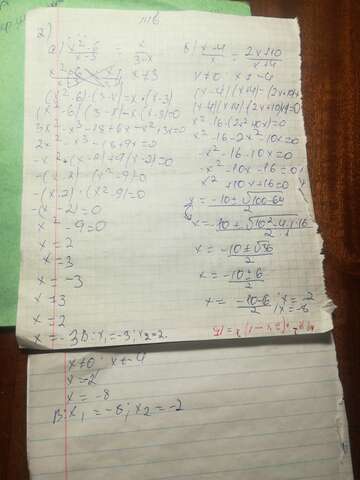 2)
а) x²-6/x-3 = x/3-x
x≠3
(x²-6)·(3-x)=x·(x-3)
(x²-6)·(3-x)-x·(x-3)=0
3x²-x³-18+6x-x²+3x=0
2x²-x³-18+9x=0
-x²·(x-2)+9(x-2)=0
-(x-2)·(x²-9)=0
-(x-2)=0
x²-9=0
x=2
x=3
x=-3
x≠3
x=2
x=-3 В: x₁=-3; x₂=2.
x-4/x = 2x+10/x+4
x≠0; x≠-4
(x-4)(x+4)-(2x+10)x
(x-4)(x+4)-(2x+10)x=0
x²-16-(2x²+10x)=0
x²-16-2x²-10x=0
-x²-16-10x=0
-x²-10x-16=0
x²+10x+16=0
x=-10±√100-64/2
x=-10±√10²-4·1·16/2·1
x=-10±√36/2
x=-10±6/2
x=-10-6/2; x=-2
x=-8
x≠0; x≠-4
x=-2
x=-8
В: x₁=-8; x₂=-2